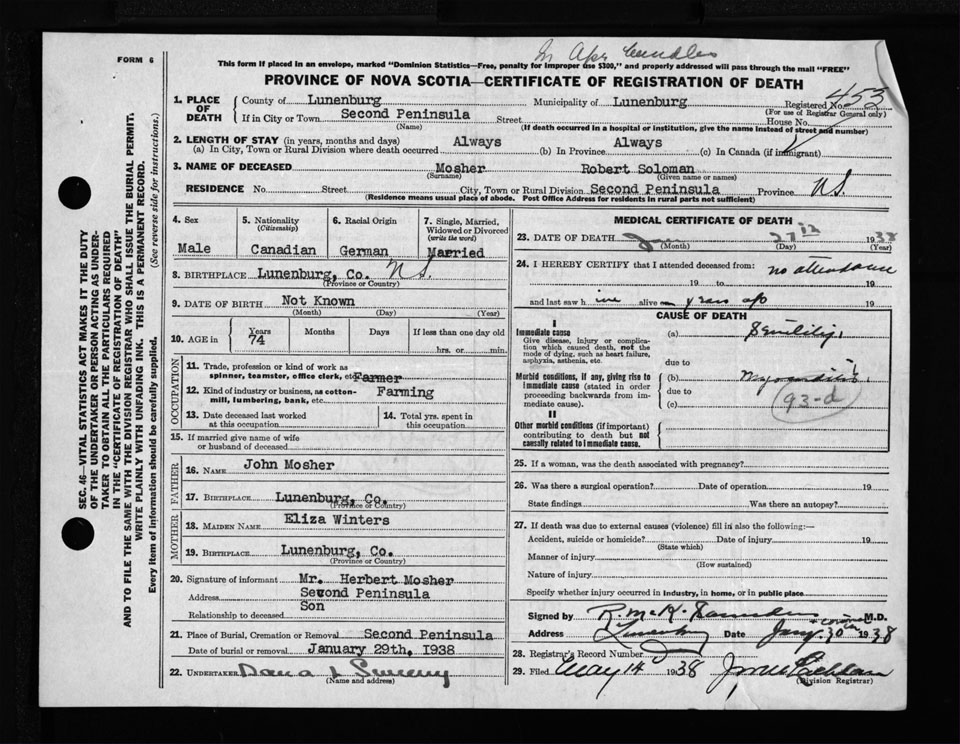 FORM 6
This form if placed in an envelope, marked "Dominion Statistics—Free, penalty for improper use $300," and properly addressed will pass through the mail "FREE"
PROVINCE OF NOVA SCOTIA—CERTIFICATE OF REGISTRATION OF DEATH
453
1. PLACE OF DEATH County of Lunenburg Municipality of Lunenburg Registered No.
(For use of Registrar General only)
If in City or Town Second Peninsula Street House No.
(Name) (If death occurred in a hospital or institution, give the name instead of street and number)
2. LENGTH OF STAY (in years, months and days) Always Always
(a) In City, Town or Rural Division where death occurred (b) In Province (c) In Canada (if immigrant)
3. NAME OF DECEASED Mosher Robert Soloman
(Surname) (Given name or names)
RESIDENCE No. Street City, Town or Rural Division Second Peninsula Province N.S.
(Residence means usual place of abode. Post Office Address for residents in rural parts not sufficient)
4. Sex
Male
5. Nationality
(Citizenship)
Canadian
6. Racial Origin
German
7. Single, Married,
Widowed or Divorced
(write the word)
Married
8. BIRTHPLACE Lunenburg, Co. N S.
(Province or Country)
9. DATE OF BIRTH Not Known
(Month) (Day) (Year)
10. AGE in Years Months Days If less than one day old
74 hrs. or min.
OCCUPATION
11. Trade, profession or kind of work as
spinner, teamster, office clerk, etc. Farmer
12. Kind of industry or business, as cotton-
mill, lumbering, bank, etc. Farming
13. Date deceased last worked
at this occupation
14. Total yrs. spent in
this occupation
15. If married give name of wife
or husband of deceased
FATHER
16. NAME John Mosher
17. BIRTHPLACE Lunenburg, Co.
(Province or Country)
MOTHER
18. MAIDEN NAME Eliza Winters
19. BIRTHPLACE Lunenburg, Co.
(Province or Country)
20. Signature of informant Mr. Herbert Mosher
Address Sevond Peninsula
Relationship to deceased Son
21. Place of Burial, Cremation or Removal Second Peninsula
Date of burial or removal January 29th, 1938
22. UNDERTAKER Dana L Sweeny
(Name and address)
MEDICAL CERTIFICATE OF DEATH
23. DATE OF DEATH Jan 27th 1938
(Month) (Day) (Year)
24. I HEREBY CERTIFY that I attended deceased from: no attendance
19 to 19
and last saw h im alive on years ago 19
CAUSE OF DEATH
I
Immediate cause
Give disease, injury or complica-
tion which caused death, not the
mode of dying, such as heart failure,
asphyxia, asthenia, etc.
(a) Senility
due to
Morbid conditions, if any, giving rise to
immediate cause (stated in order
proceeding backwards from im-
mediate cause).
(b) Myocarditis
due to
(c) 93-d
II
Other morbid conditions (if important)
contributing to death but not
causally related to immediate cause.
25. If a woman, was the death associated with pregnancy?
26. Was there a surgical operation? Date of operation 19
State findings Was there an autopsy?
27. If death was due to external causes (violence) fill in also the following:—
Accident, suicide or homicide? Date of injury 19
(State which)
Manner of injury
(How sustained)
Nature of injury
Specify whether injury occurred in industry, in home, or in public place
Signed by R. McK. Saunders M.D.
+ coroner
Address Lunenburg Date Jany. 30 1938
28. Registrar's Record Number
29. Filed May 14 1938
(Division Registrar)
SEC. 46—VITAL STATISTICS ACT MAKES IT THE DUTY
OF THE UNDERTAKER OR PERSON ACTING AS UNDER-
TAKER TO OBTAIN ALL THE PARTICULARS REQUIRED
IN THE "CERTIFICATE OF REGISTRATION OF DEATH"
AND TO FILE THE SAME WITH THE DIVISION REGISTRAR WHO SHALL ISSUE THE BURIAL PERMIT.
WRITE PLAINLY WITH UNFADING INK. THIS IS A PERMANENT RECORD.
Every item of information should be carefully supplied. (See reverse side for instructions.)